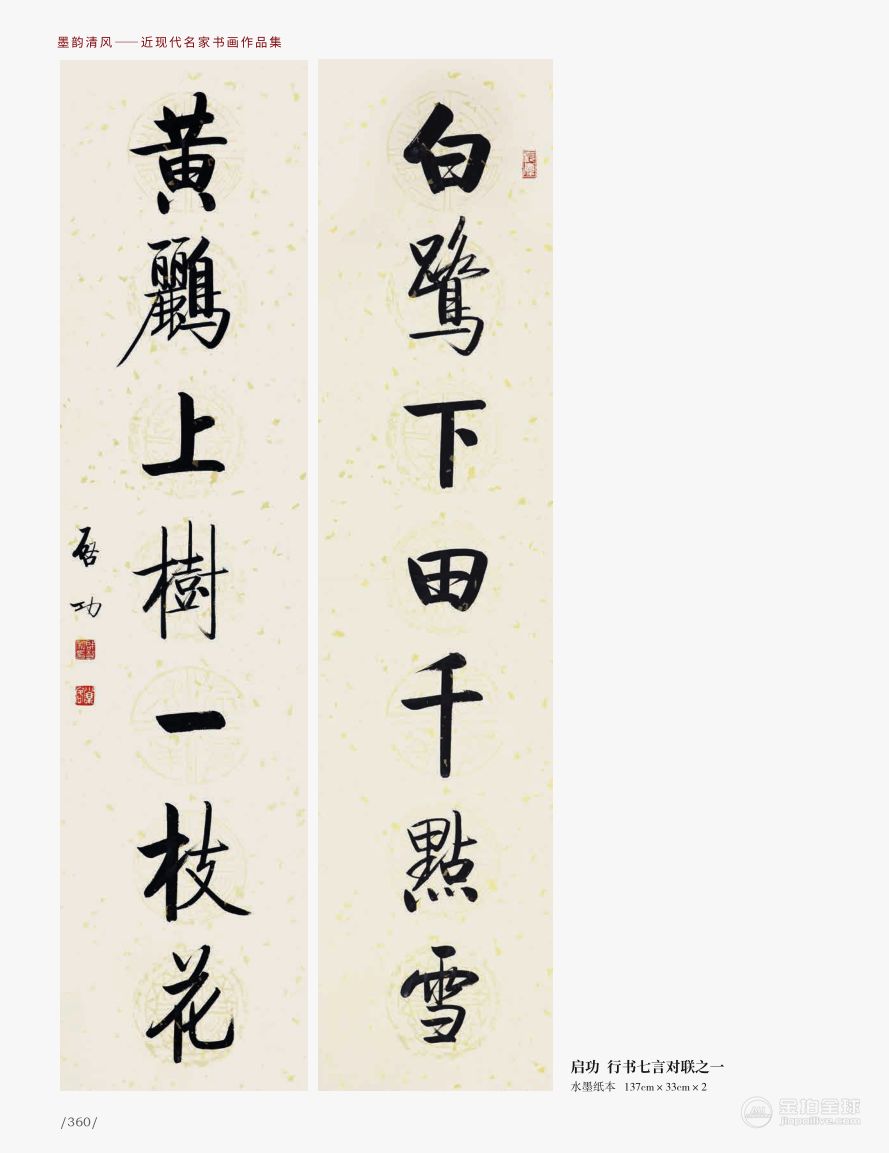 墨韵清风——近现代名家书画作品集
白鷺下田千點雪
黃鸝上樹一枝花
啓功
启功 行书七言对联之一
水墨纸本 137cm×33cm×2
/360/
金珀全球
jinpoillive.com